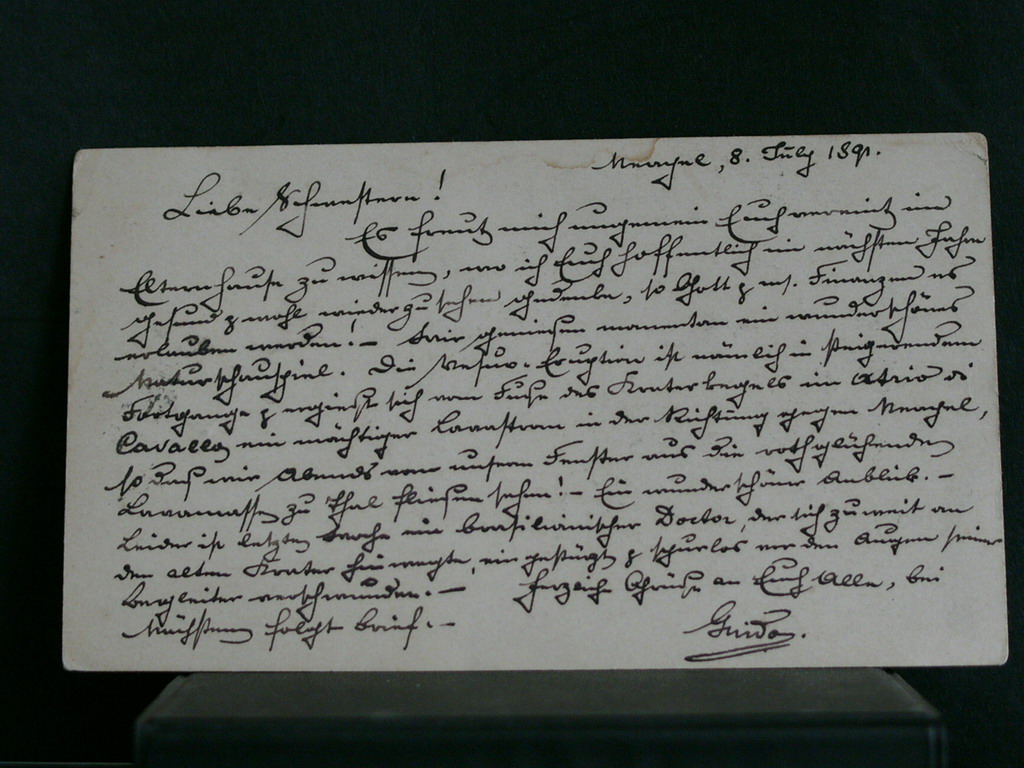 Neapel, 8. July 1891.
Liebe Schwestern!
Es freut mich ungemein Euch vereint im
Elternhause zu wissen, wo ich Euch hoffentlich im nächsten Jahre
gesund & wohl wiederzusehen gedenke, so Gott & m. Finanzen es
erlauben werden! – Wir geniessen momentan ein wunderschönes
Naturschauspiel. Die Vesuv-Eruption ist nämlich in steigerendem
Fortgange & ergiesst sich vom Fusse des Kraterkegels im Atrio di
Cavallo ein mächtiger Lavastrom in der Richtung gegen Neapel,
so dass wir Abends von unserm Fenster aus die rothglühenden
Lavamassen zu Thal fliessen sehen! – Ein wunderschöner Anblick. –
Leider ist letzten Woche ein brasilianischer Doctor, der sich zu weit an
den alten Krater hinwagte, eingestürzt & spurlos vor den Augen seiner
Begleiter verschwunden. – Herzliche Grüsse an Euch Alle, bei
Nächstem folgt Brief. –
Guido.